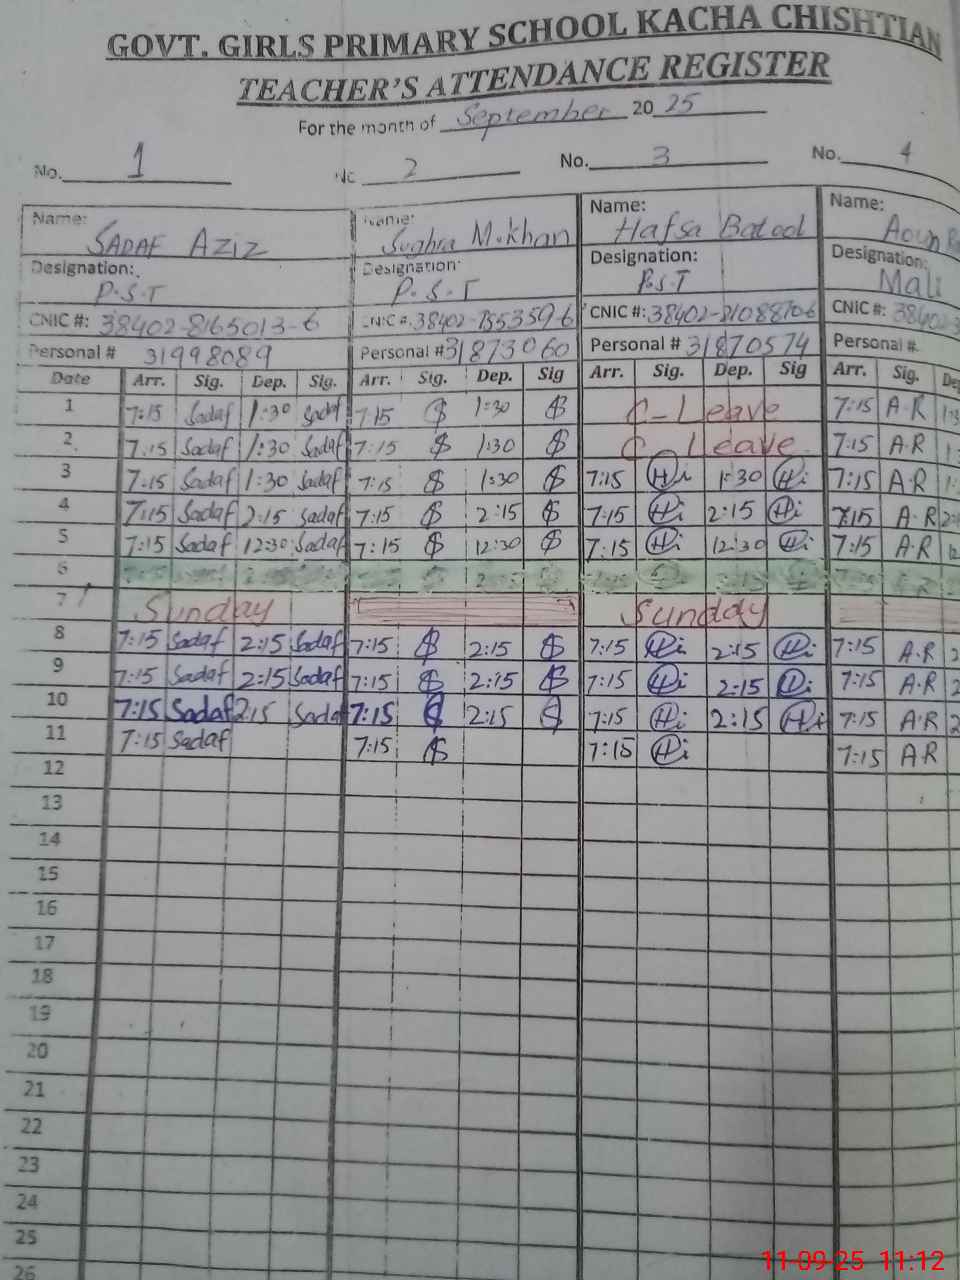 GOVT. GIRLS PRIMARY SCHOOL KACHA CHISHTIAN
TEACHER'S ATTENDANCE REGISTER
For the month of September 2025
No. 1 No. 2 No. 3 No. 4
Name: SADAF AZIZ Name: Sughra M.khan Name: Hafsa Batool Name: Aoun
Designation: P.S.T Designation: P.S.T Designation: P.S.T Designation: Mali
CNIC #: 38402-8165013-6 CNIC #: CNIC #: CNIC #:
Personal # 31998089 Personal # 31873060 Personal # 31870574 Personal #
Date Arr. Sig. Dep. Sig. Arr. Sig. Dep. Sig Arr. Sig. Dep. Sig Arr. Sig.
1 7:15 Sadaf 1:30 Sadaf 7:15 $ 1:30 $ C-Leave 7:15 A.R
2 7:15 Sadaf 1:30 Sadaf 7:15 $ 1:30 $ C Leave 7:15 A.R
3 7:15 Sadaf 1:30 Sadaf 7:15 $ 1:30 $ 7:15 Hi 1:30 Hi 7:15 A.R
4 7:15 Sadaf 2:15 Sadaf 7:15 $ 2:15 $ 7:15 Hi 2:15 Hi 7:15 A.R
5 7:15 Sadaf 12:30 Sadaf 7:15 $ 12:30 $ 7:15 Hi 12:30 Hi 7:15 A.R
6
7 Sunday Sunday
8 7:15 Sadaf 2:15 Sadaf 7:15 $ 2:15 $ 7:15 Hi 2:15 Hi 7:15 A.R
9 7:15 Sadaf 2:15 Sadaf 7:15 $ 2:15 $ 7:15 Hi 2:15 Hi 7:15 A.R
10 7:15 Sadaf 2:15 Sadaf 7:15 $ 2:15 $ 7:15 Hi 2:15 Hi 7:15 A.R
11 7:15 Sadaf 7:15 $ 7:15 Hi 7:15 AR
12
13
14
15
16
17
18
19
20
21
22
23
24
25
26
11-09-25 11:12